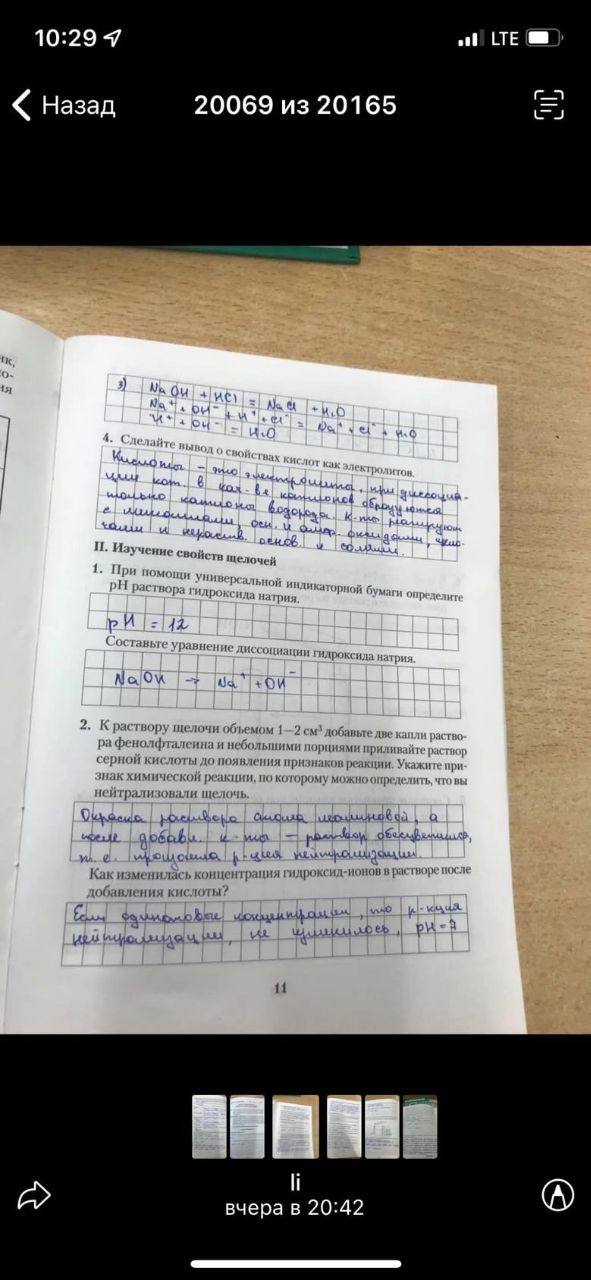 10:29
LTE
Назад
20069 из 20165
3) NaOH + HCl = NaCl + H₂O
Na⁺ + OH⁻ + H⁺ + Cl⁻ = Na⁺ + Cl⁻ + H₂O
H⁺ + OH⁻ = H₂O
4. Сделайте вывод о свойствах кислот как электролитов.
Кислоты – это электролиты, при диссоциа-
ции кот. в кач-ве катионов образуются
только катионы водорода. К-ты реагируют
с металлами, осн. и амф. оксидами, щело-
чами и нераств. основ. и солями.
II. Изучение свойств щелочей
1. При помощи универсальной индикаторной бумаги определите
pH раствора гидроксида натрия.
pH = 12
Составьте уравнение диссоциации гидроксида натрия.
NaOH → Na⁺ + OH⁻
2. К раствору щелочи объемом 1—2 см³ добавьте две капли раство-
ра фенолфталеина и небольшими порциями приливайте раствор
серной кислоты до появления признаков реакции. Укажите при-
знак химической реакции, по которому можно определить, что вы
нейтрализовали щелочь.
Окраска раствора стала малиновой, а
после добавл. к-ты – раствор обесцветился,
т. е. прошла р-ция нейтрализации.
Как изменилась концентрация гидроксид-ионов в растворе после
добавления кислоты?
Если одинаковые концентрации, то р-кция
нейтрализации, не изменилось, pH = 7
11
li
вчера в 20:42